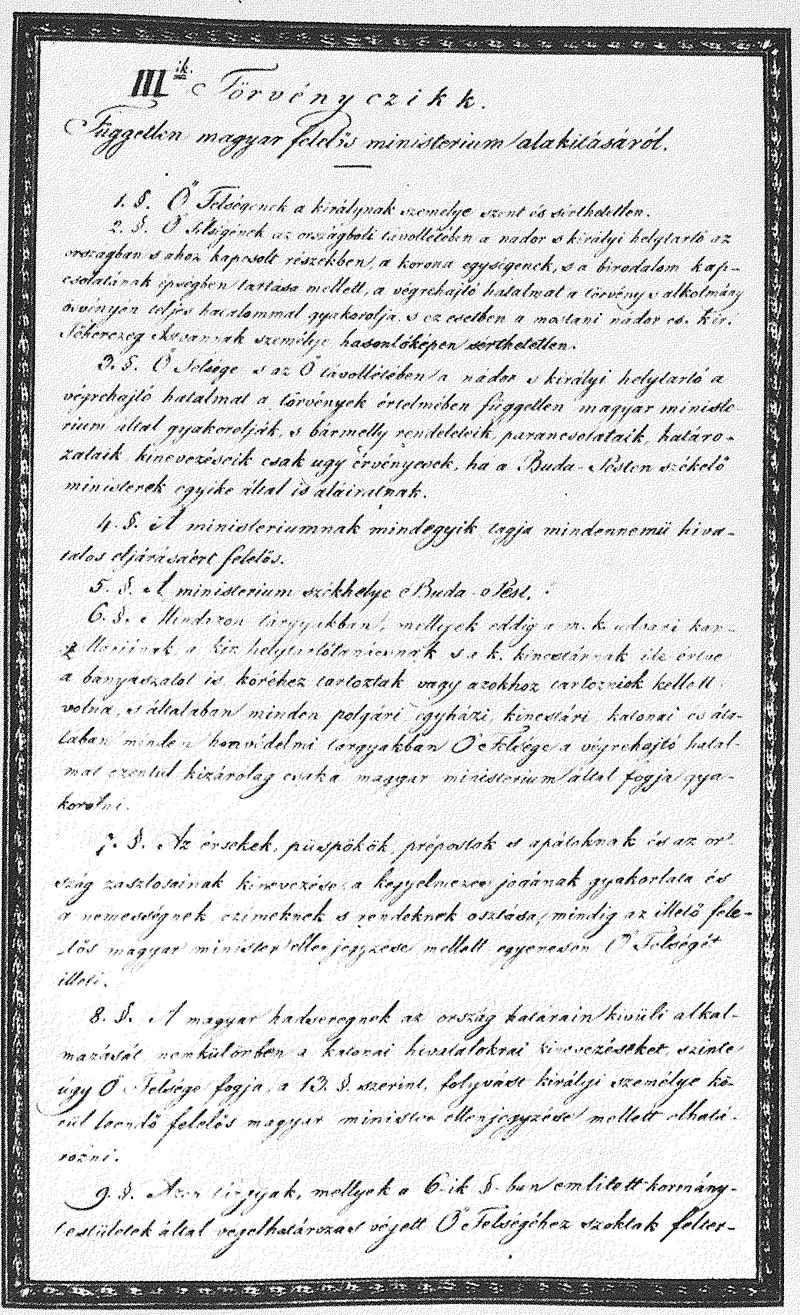 III.ik Törvényczikk.
Független magyar felelős ministerium alakitásáról.
1. §. Ő Felségenek a királynak személye szent és sérthetetlen.
2. §. Ő Felségének az országbóli távollétében a nádor s királyi helytartó az
országban s ahoz kapcsolt részekben, a korona egységenek, s a birodalom kap-
csolatának épségben tartása mellett, a végrehajtó hatalmat a törvény s alkotmány
ösvényén teljes hatalommal gyakorolja s ez esetben a mostani nádor cs. kir.
Főherczeg Istvannak személye hasonlóképen sérthetetlen.
3. §. Ő Felsége s az Ő távollétében a nádor s királyi helytartó a
végrehajtó hatalmat a törvények értelmében független magyar ministe-
rium által gyakorolják, s bármelly rendeleteik, parancsolataik, határo-
zataik, kinevezéseik csak ugy érvényesek, ha a Buda-Pesten székelő
ministerek egyike által is aláiratnak.
4. §. A ministeriumnak mindegyik tagja mindennemü hiva-
talos eljárásaért felelős.
5. §. A ministerium székhelye Buda-Pest.
6. §. Mindazon tárgyakban, mellyek eddig a m. k. udvari kan-
czelláriának a kir. helytartótanácsnak s a k. kincstárnak ide értve
a bányaszatot is, köréhez tartoztak vagy azokhoz tartozniok kellett
volna, s általaban minden polgári egyházi, kincstári, katonai és álta-
laban minden honvédelmi tárgyakban Ő Felsége a végrehajtó hatal-
mat ezentul kizárolag csak a magyar ministerium által fogja gya-
korolni.
7. §. Az érsekek, püspökök, prépostok s apátoknak és az or-
szág zászlosainak kinevezése, a kegyelmezés jogának gyakorlata és
a nemességnek czimeknek s rendeknek osztása, mindig az illető fele-
lős magyar minister ellenjegyzése mellett egyenesen Ő Felségét
illeti.
8. §. A magyar hadseregnek az ország határain kivüli alkal-
mazását nemkülönben a katonai hivatalokrai kinevezéseket, szinte
úgy Ő Felsége fogja, a 13. §. szerint, folyvást királyi személye kö-
rül leendő felelős magyar minister ellenjegyzése mellett elhatá-
rozni.
9. §. Azon tárgyak, mellyek a 6-ik §-ban emlitett kormány-
testületek által végelhatározas végett Ő Felségéhez szoktak felter-